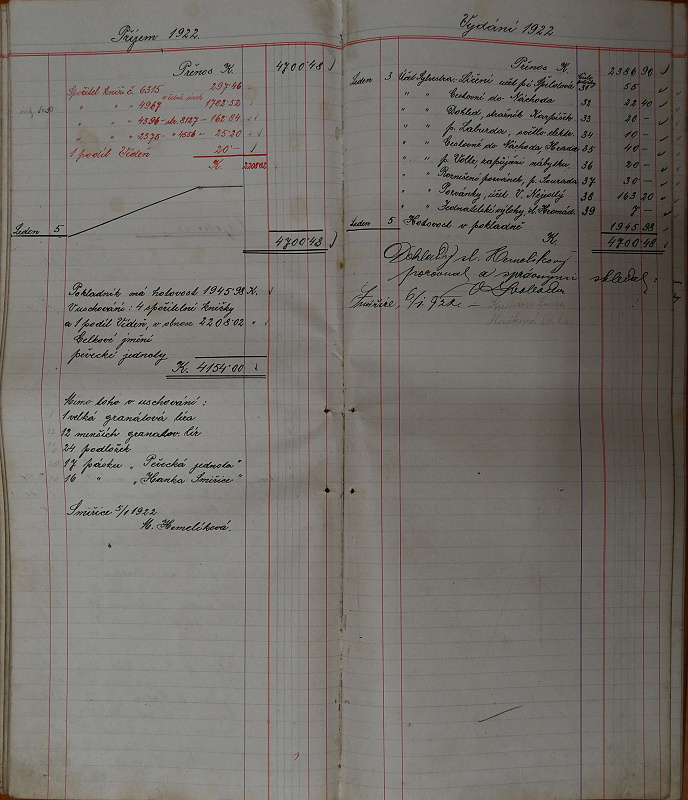 Příjem 1922.
Přenos K. 4700 48
Spořitel. kníž. č. 6315 297·46
" " " 4967 1702·52
" " " 4396 - str. 3127 - 162·84
" " " 2375 - " 4556 - 25·20
1 podíl Vídeň 20 -
K. 2208 02
Leden 5
4700·48
Pokladník má hotovost 1945·98 K.
V uschování: 4 spořitelní knížky
a 1 podíl Vídeň, v obnose 2208·02 "
Celkové jmění
pěvecké jednoty
K. 4154·00
Mimo toho v uschování:
1 velká granátová lira
12 menších granatov. lir
24 podložek
17 pásku "Pěvecká jednota"
16 " "Hanka Smiřice"
Smiřice 5/1 1922
M. Hemelíková.
Vydání 1922
Přenos K. 2386 90
Leden 3 Účet Sylvestra: Líčení účet p. 31 55 -
" " Cestovní do Náchoda 32 22 40
" " 33 20 -
" " p. Laburda, světlo elektr. 34 10 -
" " Cestovné do Náchoda 35 40 -
" " p. zapůjčení nábytku 36 20 -
" " Roznešení pozvánek, p. Sourada 37 30 -
" " Pozvánky, účet V. Nejedlý 38 163 20
" " Jednatelské výlohy, sl. Hromád. 39 7 -
Leden 5 Hotovost v pokladně 1945 98
K. 4700 48
Doklady sl. Hemelíkovy
porovnal a správnými shledal:
Smiřice, 6/I. 922. -